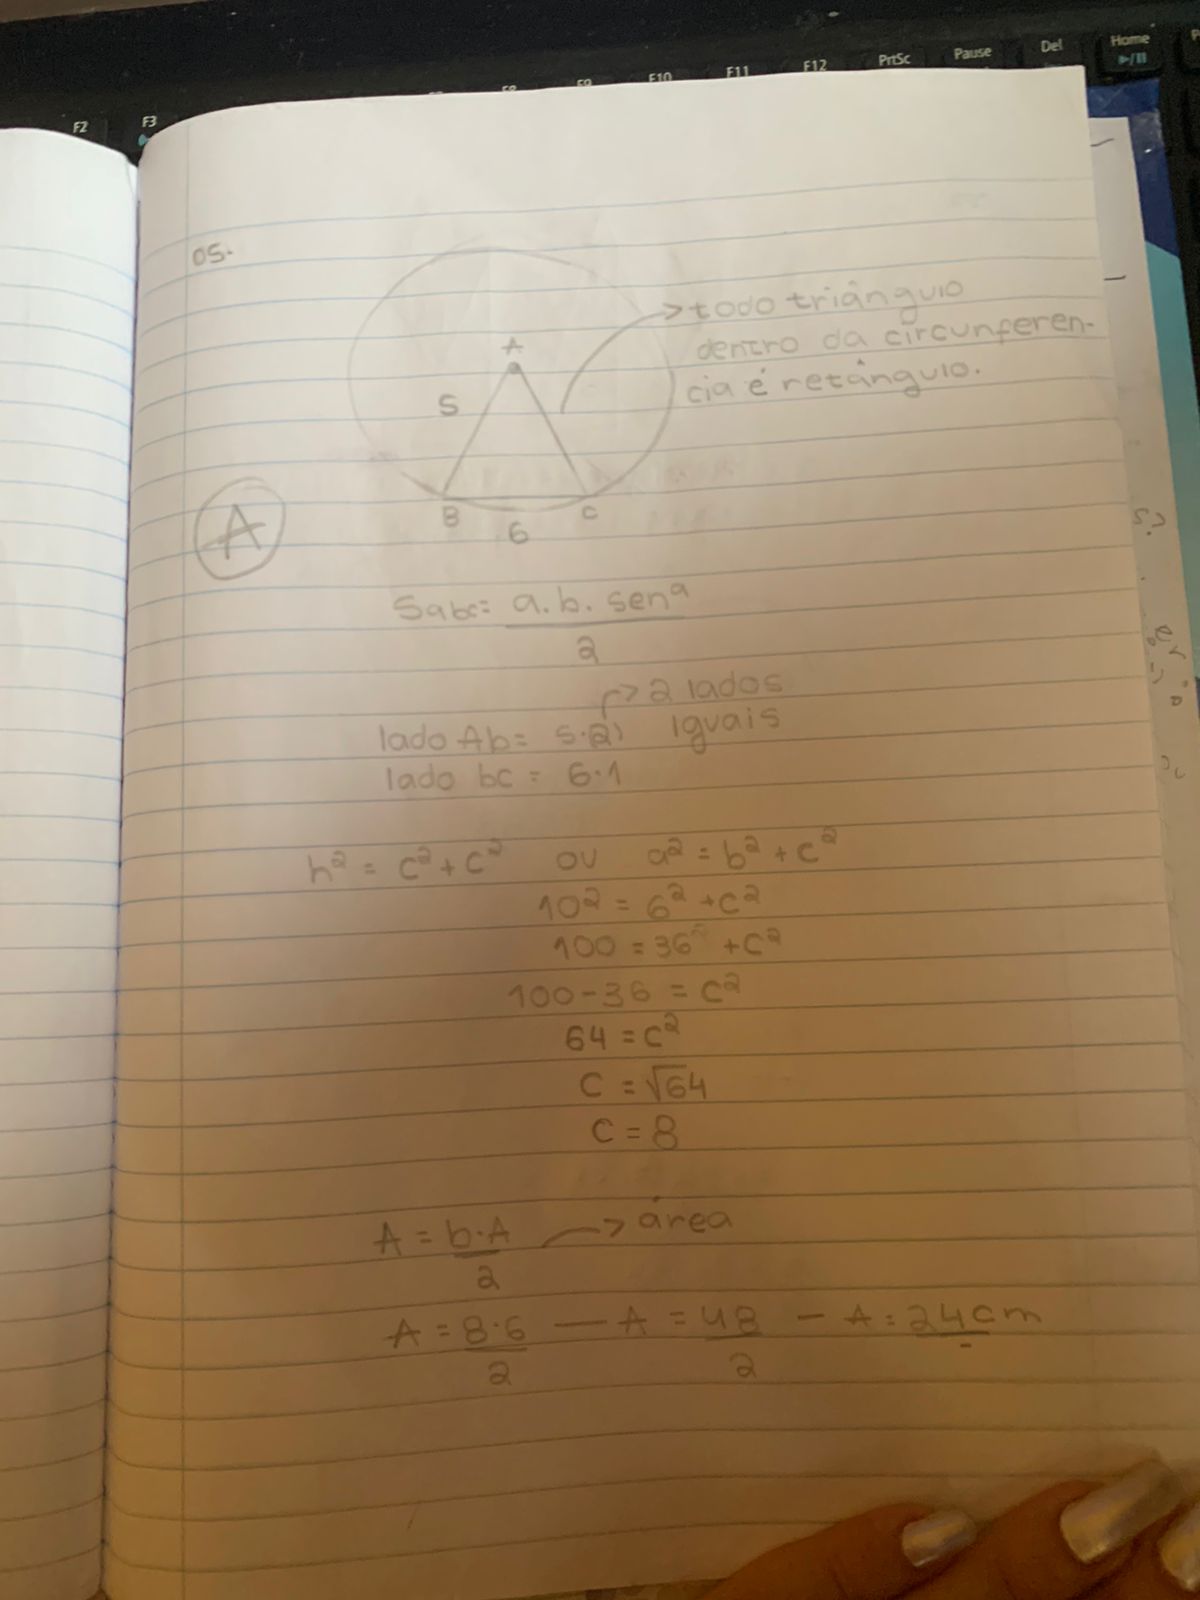 F2
F3
F9
F10
F11
F12
PrtSc
Pause
Del
Home
05.
A
S
B
C
6
→ todo triánguio
dentro da circunferen-
cia é retânguio.
A
Sabc = a.b. senª
2
→ 2 lados
lado Ab = 5.2) Iguais
lado bc = 6.1
h² = c² + c² ou a² = b² + c²
10² = 6² + c²
100 = 36 + c²
100 - 36 = c²
64 = c²
C = √64
C = 8
A = b.A → área
2
A = 8.6 — A = 48 — A: 24cm
2 2